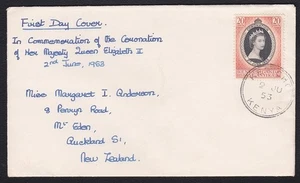 First Day Cover.
In Commemoration of the Coronation
of Her Majesty Queen Elizabeth II
2nd June, 1953
Miss Margaret I. Anderson,
8 Penryn Road,
Mt Eden,
Auckland S1,
New Zealand.
20
20
2 JU
53
KENYA